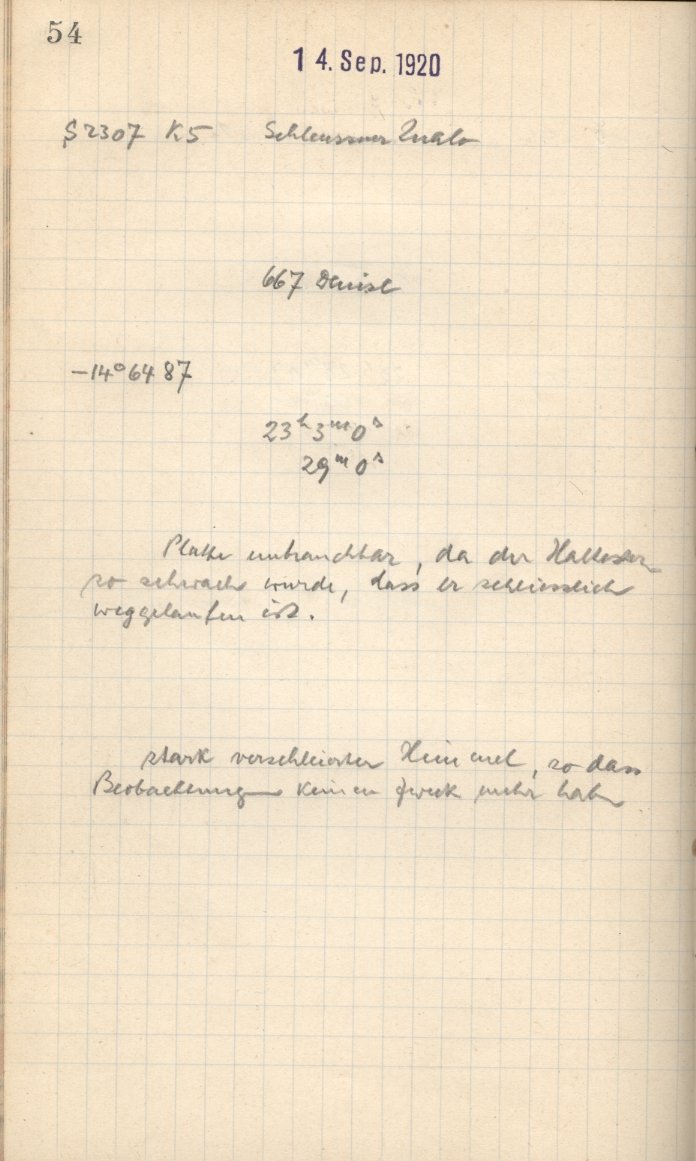 54
14. Sep. 1920
S 2307 K5 Schleussner
667 Denise
-14°6487
23h 3m 0s
29m 0s
Platte unbrauchbar, da der Haltestern
so schwach wurde, dass er schliesslich
weggelaufen ist.
stark verschleierter Himmel, so dass
Beobachtungen keinen Zweck mehr haben